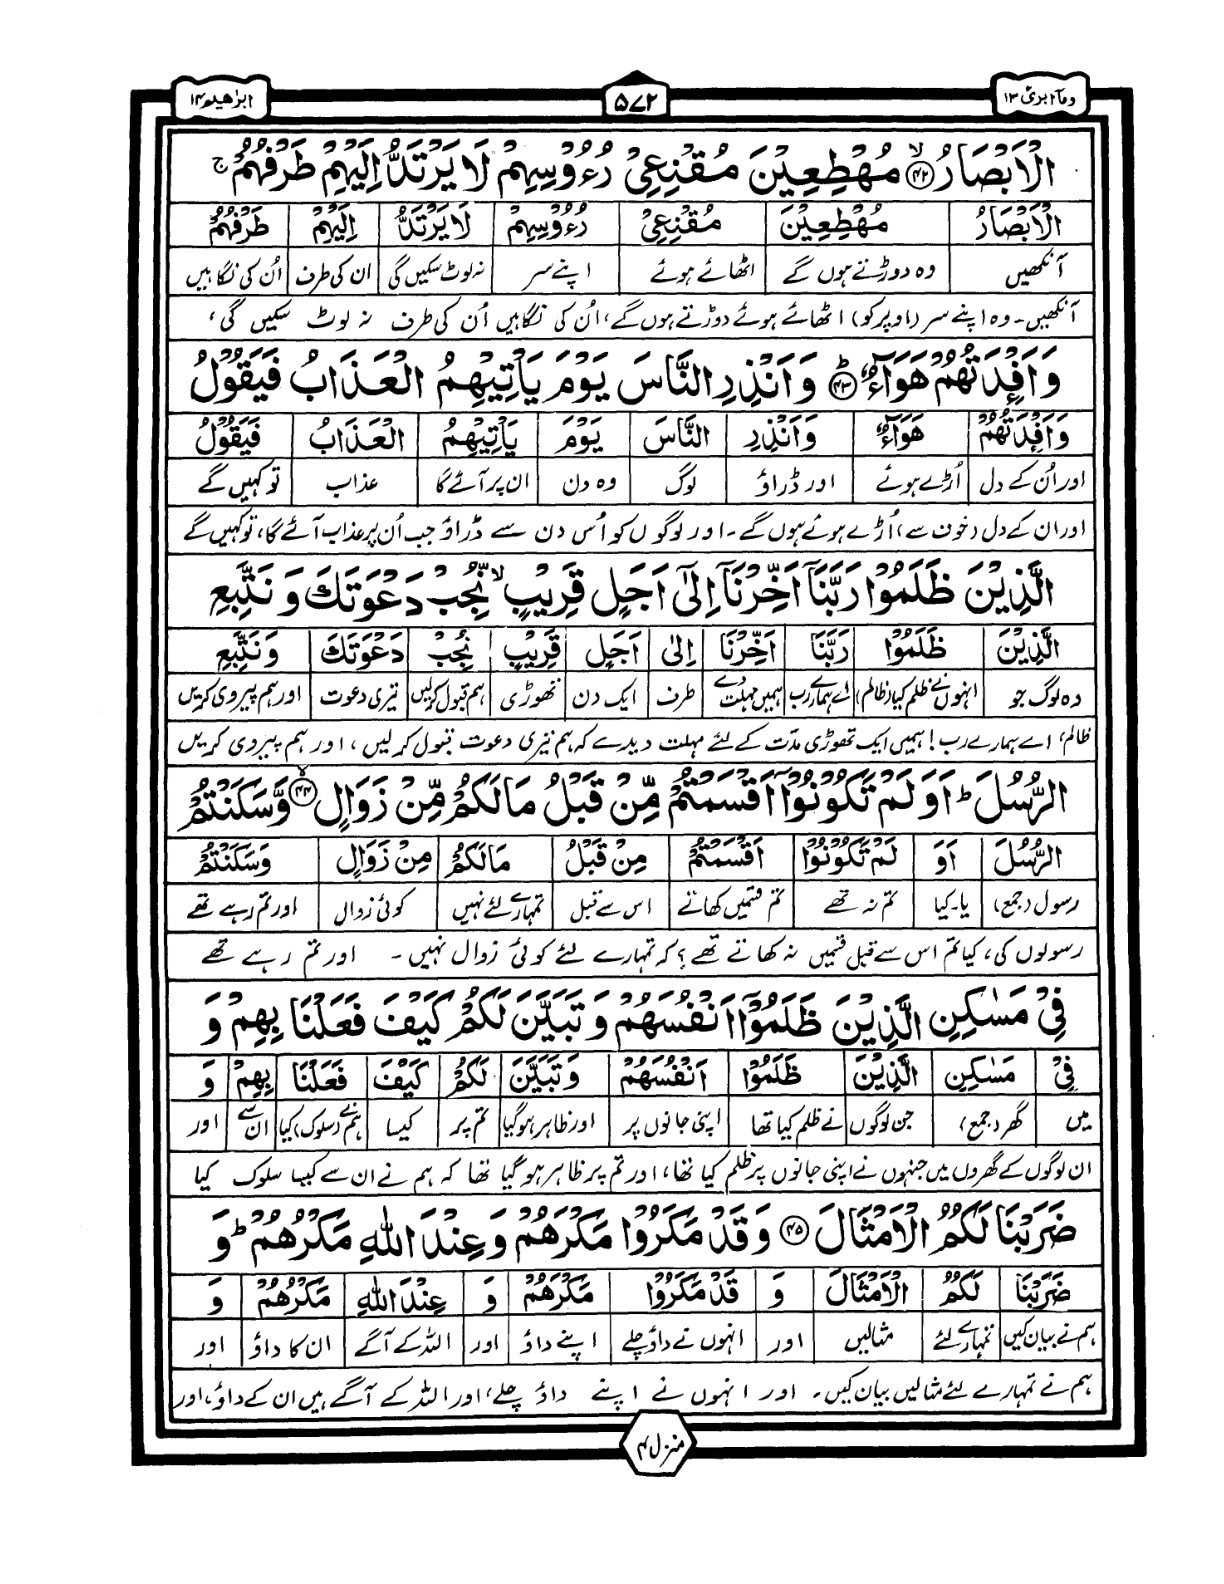 وما ابرئ ۱۳
۵۷۲
ابراهيم ۱۴
الْاَبْصَارُ ﴿۴۲﴾ لا مُهْطِعِيْنَ مُقْنِعِيْ رُءُوْسِهِمْ لَا يَرْتَدُّ اِلَيْهِمْ طَرْفُهُمْ ج
الْاَبْصَارُ مُهْطِعِيْنَ مُقْنِعِيْ رُءُوْسِهِمْ لَا يَرْتَدُّ اِلَيْهِمْ طَرْفُهُمْ
آنکھیں وہ دوڑتے ہوں گے اٹھائے ہوئے اپنے سر نہ لوٹ سکیں گی ان کی طرف اُن کی نگاہیں
آنکھیں۔ وہ اپنے سر (اوپر کو) اٹھائے ہوئے دوڑتے ہوں گے، اُن کی نگاہیں اُن کی طرف نہ لوٹ سکیں گی،
وَاَفْـِٕدَتُهُمْ هَوَآءٌ ﴿۴۳﴾ ط وَاَنْذِرِ النَّاسَ يَوْمَ يَاْتِيْهِمُ الْعَذَابُ فَيَقُوْلُ
وَاَفْـِٕدَتُهُمْ هَوَآءٌ وَاَنْذِرِ النَّاسَ يَوْمَ يَاْتِيْهِمُ الْعَذَابُ فَيَقُوْلُ
اور اُن کے دل اُڑے ہوئے اور ڈراؤ لوگ وہ دن ان پر آئے گا عذاب تو کہیں گے
اور ان کے دل (خوف سے) اُڑے ہوئے ہوں گے۔ اور لوگوں کو اُس دن سے ڈراؤ جب اُن پر عذاب آئے گا، تو کہیں گے
الَّذِيْنَ ظَلَمُوْا رَبَّنَآ اَخِّرْنَآ اِلٰٓى اَجَلٍ قَرِيْبٍ لا نُّجِبْ دَعْوَتَكَ وَنَتَّبِعِ
الَّذِيْنَ ظَلَمُوْا رَبَّنَا اَخِّرْنَا اِلٰى اَجَلٍ قَرِيْبٍ نُجِبْ دَعْوَتَكَ وَنَتَّبِعِ
وہ لوگ جو انہوں نے ظلم کیا (ظالم) اے ہمارے رب ہمیں مہلت دے طرف ایک دن تھوڑی ہم قبول کرلیں تیری دعوت اور ہم پیروی کریں
ظالم، اے ہمارے رب! ہمیں ایک تھوڑی مدت کے لئے مہلت دیدے کہ ہم تیری دعوت قبول کرلیں، اور ہم پیروی کریں
الرُّسُلَ ط اَوَلَمْ تَكُوْنُوْٓا اَقْسَمْتُمْ مِّنْ قَبْلُ مَا لَكُمْ مِّنْ زَوَالٍ ﴿۴۴﴾ لا وَّسَكَنْتُمْ
الرُّسُلَ اَوَ لَمْ تَكُوْنُوْا اَقْسَمْتُمْ مِنْ قَبْلُ مَا لَكُمْ مِنْ زَوَالٍ وَسَكَنْتُمْ
رسول (جمع) یا۔ کیا تم نہ تھے تم قسمیں کھاتے اس سے قبل تمہارے لئے نہیں کوئی زوال اور تم رہے تھے
رسولوں کی، کیا تم اس سے قبل قسمیں نہ کھاتے تھے؟ کہ تمہارے لئے کوئی زوال نہیں۔ اور تم رہے تھے
فِيْ مَسٰكِنِ الَّذِيْنَ ظَلَمُوْٓا اَنْفُسَهُمْ وَتَبَيَّنَ لَكُمْ كَيْفَ فَعَلْنَا بِهِمْ وَ
فِيْ مَسٰكِنِ الَّذِيْنَ ظَلَمُوْا اَنْفُسَهُمْ وَتَبَيَّنَ لَكُمْ كَيْفَ فَعَلْنَا بِهِمْ وَ
میں گھر (جمع) جن لوگوں نے ظلم کیا تھا اپنی جانوں پر اور ظاہر ہوگیا تم پر کیسا ہم نے (سلوک) کیا ان سے اور
ان لوگوں کے گھروں میں جنہوں نے اپنی جانوں پر ظلم کیا تھا، اور تم پر ظاہر ہوگیا تھا کہ ہم نے ان سے کیسا سلوک کیا
ضَرَبْنَا لَكُمُ الْاَمْثَالَ ﴿۴۵﴾ وَقَدْ مَكَرُوْا مَكْرَهُمْ وَعِنْدَ اللّٰهِ مَكْرُهُمْ ط وَ
ضَرَبْنَا لَكُمُ الْاَمْثَالَ وَ قَدْ مَكَرُوْا مَكْرَهُمْ وَ عِنْدَ اللّٰهِ مَكْرُهُمْ وَ
ہم نے بیان کیں تمہارے لئے مثالیں اور انہوں نے داؤ چلے اپنے داؤ اور اللہ کے آگے ان کا داؤ اور
ہم نے تمہارے لئے مثالیں بیان کیں۔ اور انہوں نے اپنے داؤ چلے، اور اللہ کے آگے ہیں ان کے داؤ، اور
منزل ۳